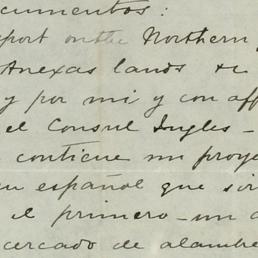 cumentos:
port on the Northern
Anexas lands &c
y por mi y con aff
el Consul Ingles -
contiene un proye
en español que sir
el primero - un
cercado de alambre